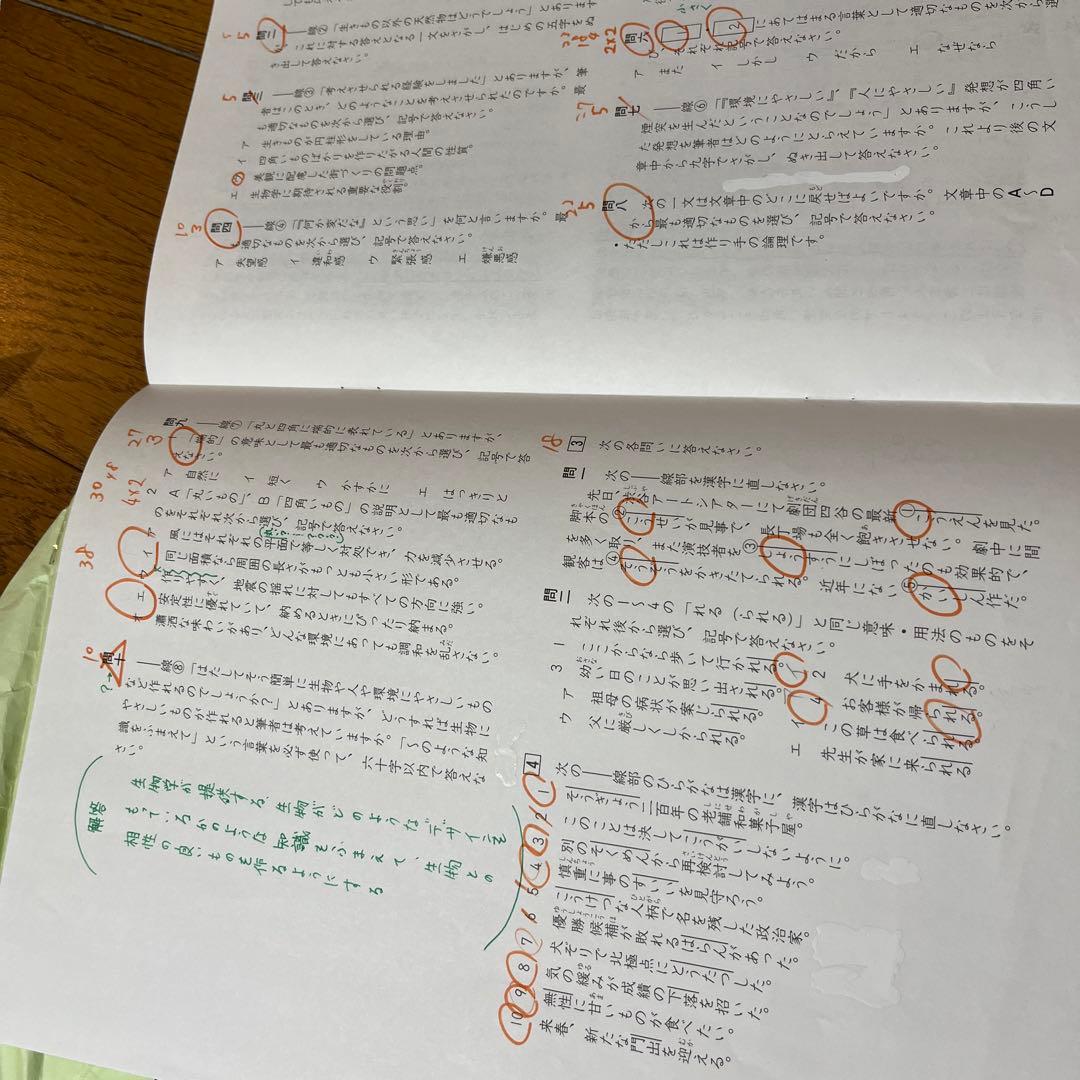 問二 ――線②「生きもの以外の天然物はどうでしょう」とあります
が、これに対する答えとなる一文をさがし、はじめの五字をぬ
き出して答えなさい。
5
問三 ――線③「考えさせられる経験をしました」とありますが、筆
者はこのとき、どのようなことを考えさせられたのですか。最
も適切なものを次から選び、記号で答えなさい。
5
ア 生きものが円柱形をしている理由。
イ 四角いものばかりを作りたがる人間の性質。
ウ 美観に配慮した街づくりの問題点。
エ 生物学に期待される重要な役割。
問四 ――線④「『何か変だな』という思い」を何と言いますか。最
も適切なものを次から選び、記号で答えなさい。
10
3
ア 失望感 イ 違和感 ウ 緊張感 エ 嫌悪感
問六 1 2 にあてはまる言葉として適切なものを次から選
び、それぞれ記号で答えなさい。
2×2
ア また イ しかし ウ だから エ なぜなら
問七 ――線⑥「『環境にやさしい』、『人にやさしい』発想が四角い
煙突を生んだということなのでしょう」とありますが、こうし
た発想を筆者はどのようにとらえていますか。これより後の文
章中から九字でさがし、ぬき出して答えなさい。
5
問八 次の一文は文章中のどこに戻せばよいですか。文章中のA~D
から最も適切なものを選び、記号で答えなさい。
5
・ただしこれは作り手の論理です。
問九 ――線⑦「丸と四角に端的に表れている」とありますが、
27
3
1 「端的」の意味として最も適切なものを次から選び、記号で答
えなさい。
ア 自然に イ 短く ウ かすかに エ はっきりと
30
4×2
2 A「丸いもの」、B「四角いもの」の説明として最も適切なも
のをそれぞれ次から選び、記号で答えなさい。
ア 風にはそれぞれの平面で等しく対処でき、力を減少させる。
イ 同じ面積なら周囲の長さがもっとも小さい形である。
ウ 作りやすく、地震の揺れに対してもすべての方向に強い。
エ 安定性に優れていて、納めるときにぴったり納まる。
オ 瀟洒な味わいがあり、どんな環境にあっても調和を乱さない。
38
問十 ――線⑧「はたしてそう簡単に生物や人や環境にやさしいもの
など作れるのでしょうか?」とありますが、どうすれば生物に
やさしいものが作れると筆者は考えていますか。「~のような知
識をふまえて」という言葉を必ず使って、六十字以内で答えな
さい。
10
?
解答
生物学が提供する、生物がどのようなデザインを
もっているかのような知識をふまえて、生物との
相性の良いものを作るようにする
18
3 次の各問いに答えなさい。
問一 次の――線部を漢字に直しなさい。
先日、渋谷アートシアターにて劇団四谷の最新①こうえんを見た。
脚本の②こうせいが見事で、長丁場も全く飽きさせない。劇中に間
を多く取り、また演技者を③しょうすうにしぼったのも効果的で、
観客は④そうぞうをかきたてられる。近年にない⑤かいしん作だ。
問二 次の1~4の「れる(られる)」と同じ意味・用法のものをそ
れぞれ後から選び、記号で答えなさい。
1 ここからなら歩いて行かれる。 2 犬に手をかまれる。
3 幼い日のことが思い出される。 4 お客様が帰られる。
ア 祖母の病状が案じられる。 イ この草は食べられる。
ウ 父に厳しくしかられる。 エ 先生が家に来られる。
4 次の――線部のひらがなは漢字に、漢字はひらがなに直しなさい。
1 そうぎょう二百年の老舗和菓子屋。
2 このことは決してこうがいしないように。
3 別のそくめんから再検討してみよう。
4 慎重に事のすいいを見守ろう。
5 こうけつな人柄で名を残した政治家。
6 優勝候補が敗れるはらんがあった。
7 犬ぞりで北極点にとうたつした。
8 気の緩みが成績の下落を招いた。
9 無性に甘いものが食べたい。
10 来春、新たな門出を迎える。